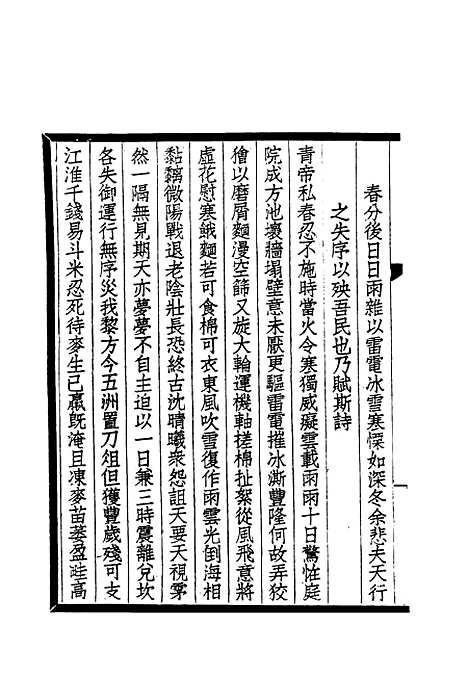 春分後日日雨雜以雷電冰雪寒慄如深冬余悲夫天行
之失序以殃吾民也乃賦斯詩
青帝私春忍不施時當火令寒獨威癡雲載雨雨十日驚恠庭
院成方池壞牆塌壁意未厭更驅雷電摧冰澌豐隆何故弄狡
獪以磨屑麵漫空篩又旋大輪運機軸搓棉扯絮從風飛意將
虛花慰寒餓麵若可食棉可衣東風吹雪復作雨雲光倒海相
黏黐微陽戰退老陰壯長恐終古沈晴曦衆怨詛天要天視霁
然一隔無見期天亦夢夢不自主迫以一日兼三時震離兌坎
各失御運行無序災我黎方今五洲置刀俎但獲豐歲殘可支
江淮千錢易斗米忍死待麥生已羸旣淹且凍麥苗萎盈畦高